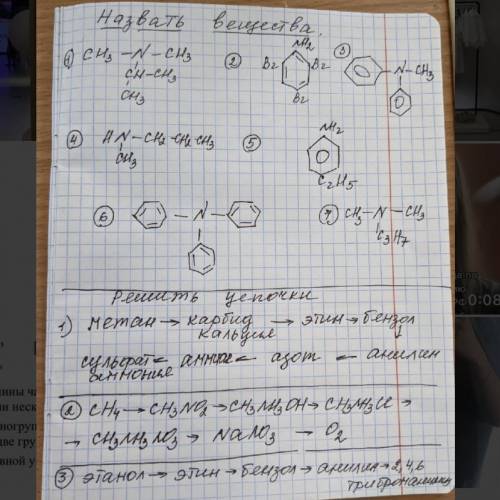 Назвать вещества.
① CH3 – N – CH3
CH – CH3
CH3
② NH2
Br Br
Br
③ N – CH3
④ HN – CH2 – CH2 – CH3
CH3
⑤ NH2
C2H5
⑥ N
⑦ CH3 – N – CH3
C3H7
Решить цепочки
1) метан → карбид кальция → этин → бензол ↓
сульфат аммония ← аммиак ← азот ← анилин
② CH4 → CH3NO2 → CH3NH3OH → CH3NH3Cl →
→ CH3NH3NO3 → NaNO3 → O2
③ этанол → этин → бензол → анилин → 2,4,6
триброманилин
0:08